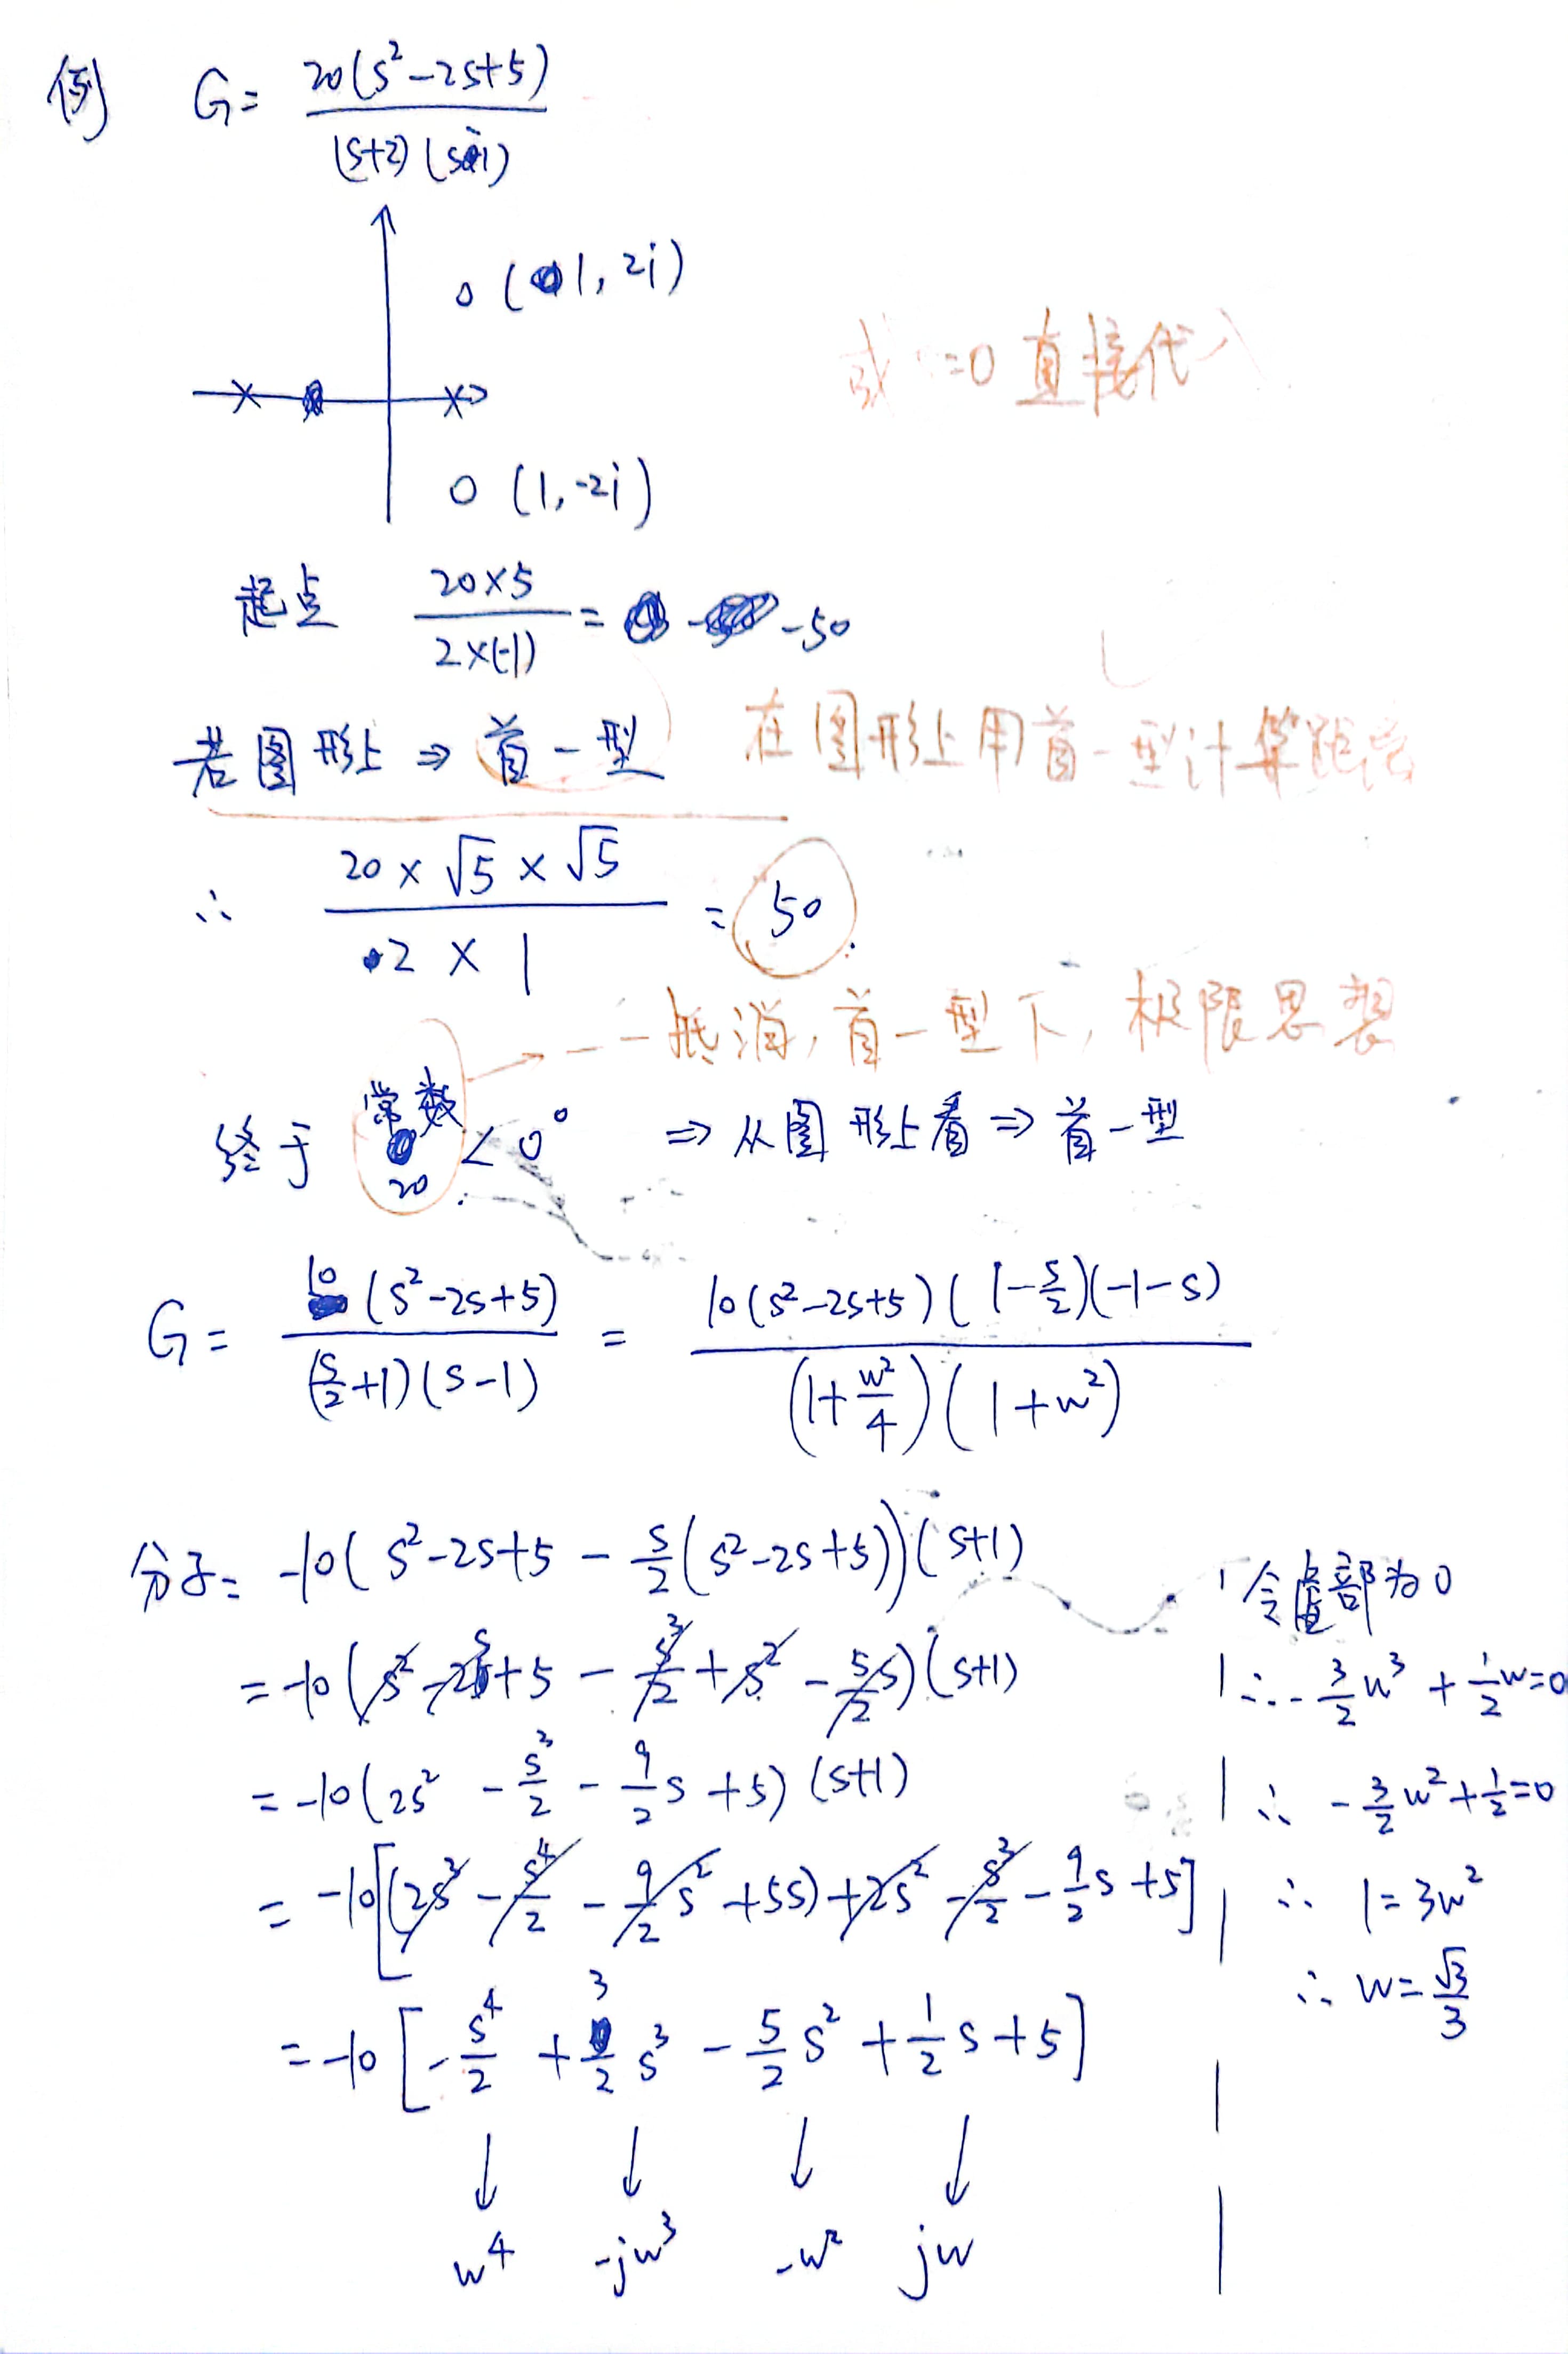 例 G= 20(s²-2s+5) / (s+2)(s-1)
(1, 2i)
或 =0 直接代入
(1, -2i)
起点 20×5 / 2×(-1) = -50
若图形上 ⇒ 首一型 在图形上用首一型计算
∴ 20×√5×√5 / 2×1 = 50
→ 一抵消, 首一型下, 极限思想
终于 常数 20 ∠0° ⇒ 从图形上看 ⇒ 首一型
G= 10(s²-2s+5) / (s/2+1)(s-1) = 10(s²-2s+5)(1-s/2)(-1-s) / (1+w²/4)(1+w²)
分子= -10(s²-2s+5 - s/2(s²-2s+5))(s+1)
= -10(s²-2s+5 - s³/2 + s² - 5/2s)(s+1)
= -10(2s² - s³/2 - 9/2s +5)(s+1)
= -10[(2s³ - s⁴/2 - 9/2s² +5s) +2s² - s³/2 - 9/2s +5]
= -10[-s⁴/2 + 3/2s³ - 5/2s² + 1/2s +5]
↓ ↓ ↓ ↓
w⁴ -jw³ -w² jw
令虚部为0
∴ -3/2w³ + 1/2w=0
∴ -3/2w² + 1/2=0
∴ 1=3w²
∴ w=√3/3